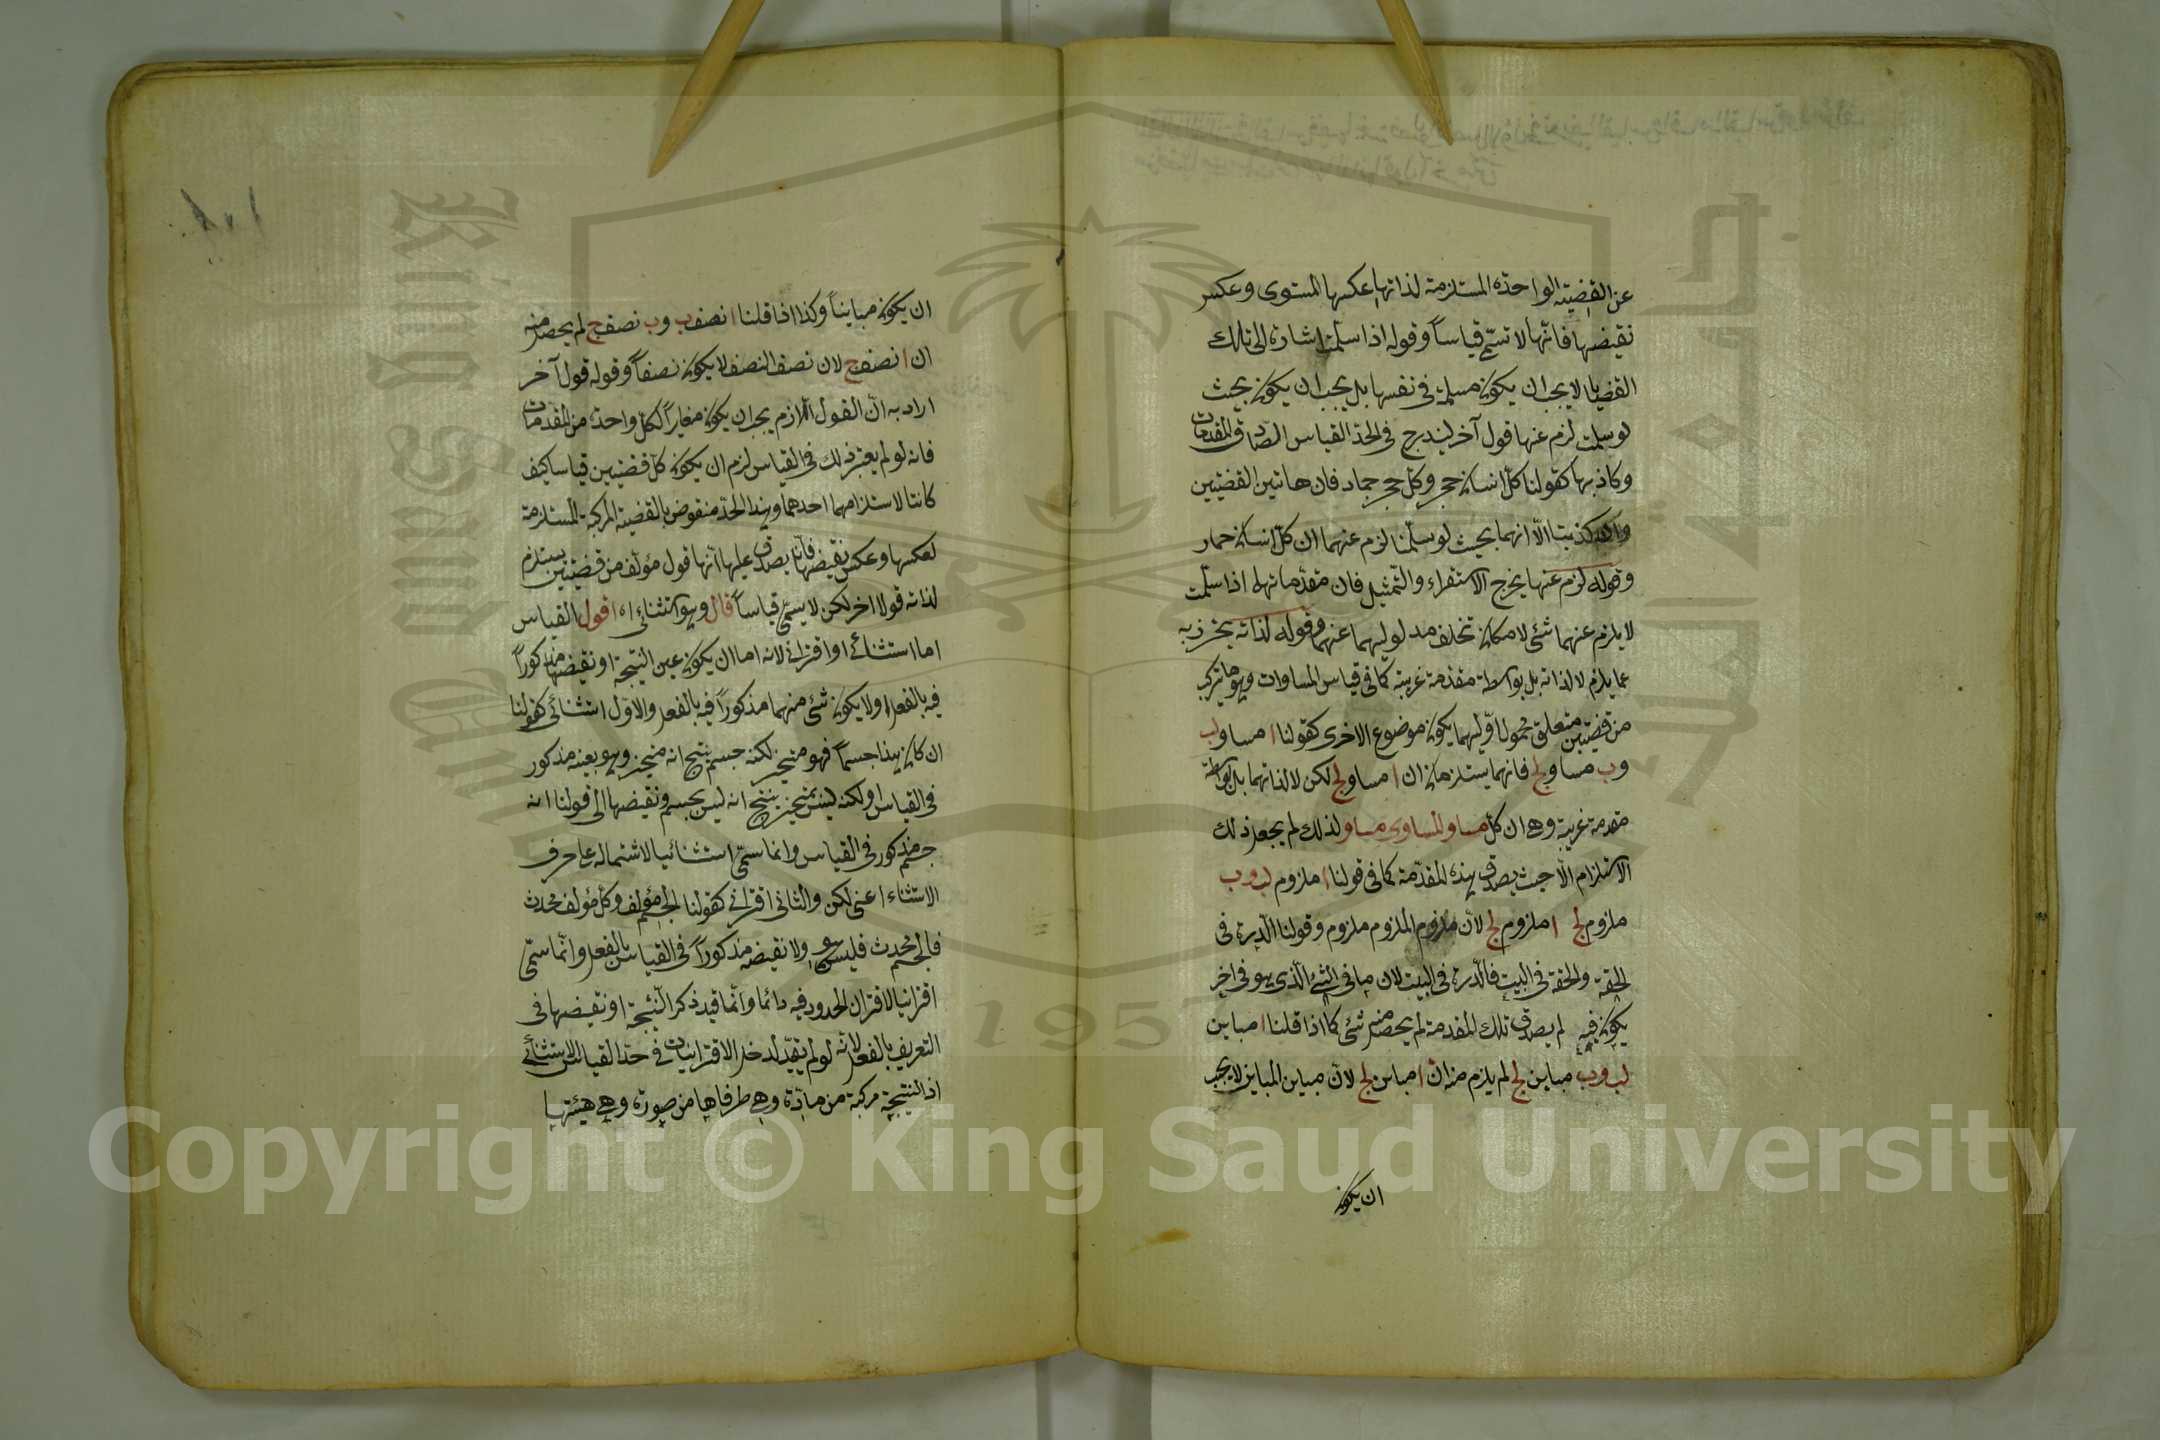 عن القضية الواحدة المستلزمة لذاتها عكسها المستوى وعكس
نقيضها فانها لا تسمّى قياساً وقوله اذا سلمت اشارة الى تلك
القضايا لا يجب ان يكون مسلمة فى نفسها بل يجب ان يكون بحيث
لو سلمت لزم عنها قول آخر ليندرج فى الحدّ القياس الصادق المقدمات
وكاذبها كقولنا كلّ انسان حجر وكلّ حجر جماد فان هاتين القضيتين
وان كذبتا الّا انهما بحيث لو سلّمتا لزم عنهما ان كلّ انسان حمار
وقوله لزم عنها يخرج الاستقراء والتمثيل فان مقدماتهما اذا سلّمت
لا يلزم عنهما شئ لامكان تخلف مدلوليهما عنهما وقوله لذاته يحترز به
عما يلزم لا لذاته بل بواسطة مقدمة غريبة كما فى قياس المساوات وهو ما يتركب
من قضيتين متعلق محمول اوليهما يكون موضوع الاخرى كقولنا ا مساو لب
وب مساو لج فانهما يستلزمان ان ا مساو لج لكن لا لذاتهما بل بواسطة
مقدمة غريبة وهى ان كلّ مساو للمساوى مساو ولذلك لم يجعل ذلك
الاستلزام الّا حيث يصدق هذه المقدّمة كما فى قولنا ا ملزوم لب وب
ملزوم لج ا ملزوم لج لانّ ملزوم الملزوم ملزوم وقولنا الدرة فى
الحقة والحقة فى البيت فالدرة فى البيت لان ما فى الشئ الّذى هو فى اخر
يكون فيه لم يصدق تلك المقدمة لم يحصل منه شئ كما اذا قلنا ا مباين
لب وب مباين لج لم يلزم منه انّ ا مباين لج لانّ مباين المباين لا يجب
ان يكون
ان يكون مبايناً وكذا اذا قلنا ا نصف ب وب نصف ج لم يحصل منه
ان ا نصف ج لان نصف النصف لا يكون نصفاً وقوله قول آخر
اراد به انّ القول اللازم يجب ان يكون مغايراً لكل واحدة من المقدمات
فانه لو لم يعتبر ذلك فى القياس لزم ان يكون كلّ قضيتين قياسا كيف
كانتا لاستلزامهما احدهما وهذا الحدّ منقوض بالقضية المركبة المستلزمة
لعكسها وعكس نقيضها فانّه يصدق عليها انها قول مؤلف من قضيتين يستلزم
لذاته قولا اخر لكن لا يسمّى قياساً قال وهو استثنائى اه اقول القياس
اما استثنائى او اقترانى لانه اما ان يكون عين النتيجة او نقيضها مذكوراً
فيه بالفعل او لا يكون شئ منهما مذكوراً فيه بالفعل والاوّل استثنائى كقولنا
ان كان هذا جسماً فهو متحيز لكنه جسم ينتج انه متحيز وهو بعينه مذكور
فى القياس او لكنه ليس بمتحيز ينتج انه ليس بجسم ونقيضها اى قولنا انه
جسم مذكور فى القياس وانما سمّى استثنائيا لاشتماله على حرف
الاستثناء اعنى لكن والثانى اقترانى كقولنا الجسم مؤلف وكلّ مؤلف محدث
فالجسم محدث فليس هو ولا نقيضه مذكوراً فى القياس بالفعل وانّما سمّى
اقترانيا لاقتران الحدود فيه دائما وانّما قيد ذكر النتيجة او نقيضها فى
التعريف بالفعل لانّه لو لم يقيّد لدخل الاقترانيات فى حدّ القياس الاستثنائى
اذ النتيجة مركبة من مادّة وهى طرفاها من صورة وهى هيئتها